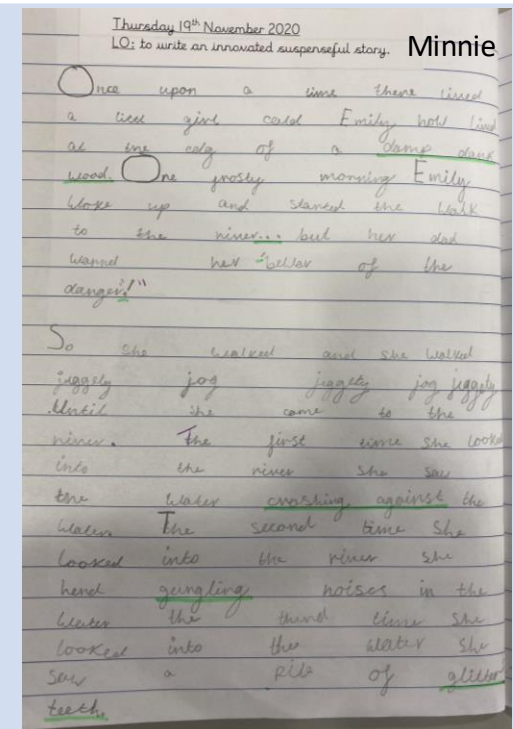 Thursday 19th November 2020
LO: to write an innovated suspenseful story.
Minnie
Once upon a time there lived
a litel girl cald Emily how livd
at the edg of a damp dark
wood. One frosty morning Emily
Woke up and started the Walk
to the river... but her dad
wanned her "bewar of the
danger!"
So she walked and she walked
jiggety jog jiggety jog jiggety
Until she came to the
river. The first time she looked
into the river she saw
the Water crashing against the
Water. The second time she
looked into the river she
herd gurgling noises in the
Water the third time she
looked into the Water she
saw a of glitter
teeth.